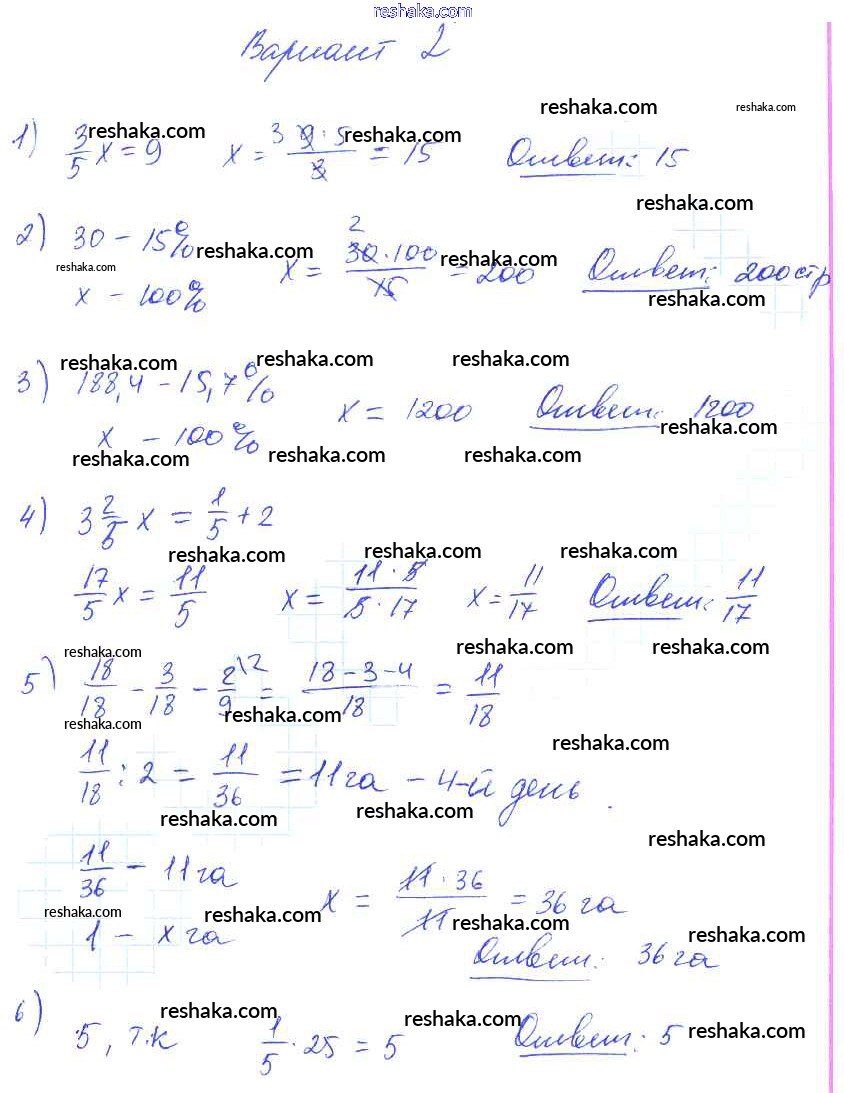 reshaka.com
Вариант 2
reshaka.com reshaka.com
1) 3/5 x = 9 x = 3 9·5/3 = 15 Ответ: 15
reshaka.com reshaka.com
reshaka.com
2) 30 – 15% x = 2 30·100/15 = 200 Ответ: 200 стр
reshaka.com reshaka.com
x – 100%
reshaka.com reshaka.com
reshaka.com reshaka.com reshaka.com
3) 188,4 – 15,7% x = 1200 Ответ: 1200
x – 100%
reshaka.com
reshaka.com reshaka.com reshaka.com
4) 3 2/5 x = 1/5 + 2
reshaka.com reshaka.com reshaka.com
17/5 x = 11/5 x = 11·5/5·17 x = 11/17 Ответ: 11/17
reshaka.com reshaka.com reshaka.com
5) 18/18 – 3/18 – 2/9 \2 = 18–3–4/18 = 11/18
reshaka.com reshaka.com
reshaka.com
11/18 : 2 = 11/36 = 11 га – 4-й день.
reshaka.com reshaka.com
reshaka.com
11/36 – 11 га x = 11·36/11 = 36 га
reshaka.com reshaka.com reshaka.com
1 – x га
reshaka.com
Ответ: 36 га
reshaka.com reshaka.com
6) 5, т.к 1/5 · 25 = 5 Ответ: 5
reshaka.com